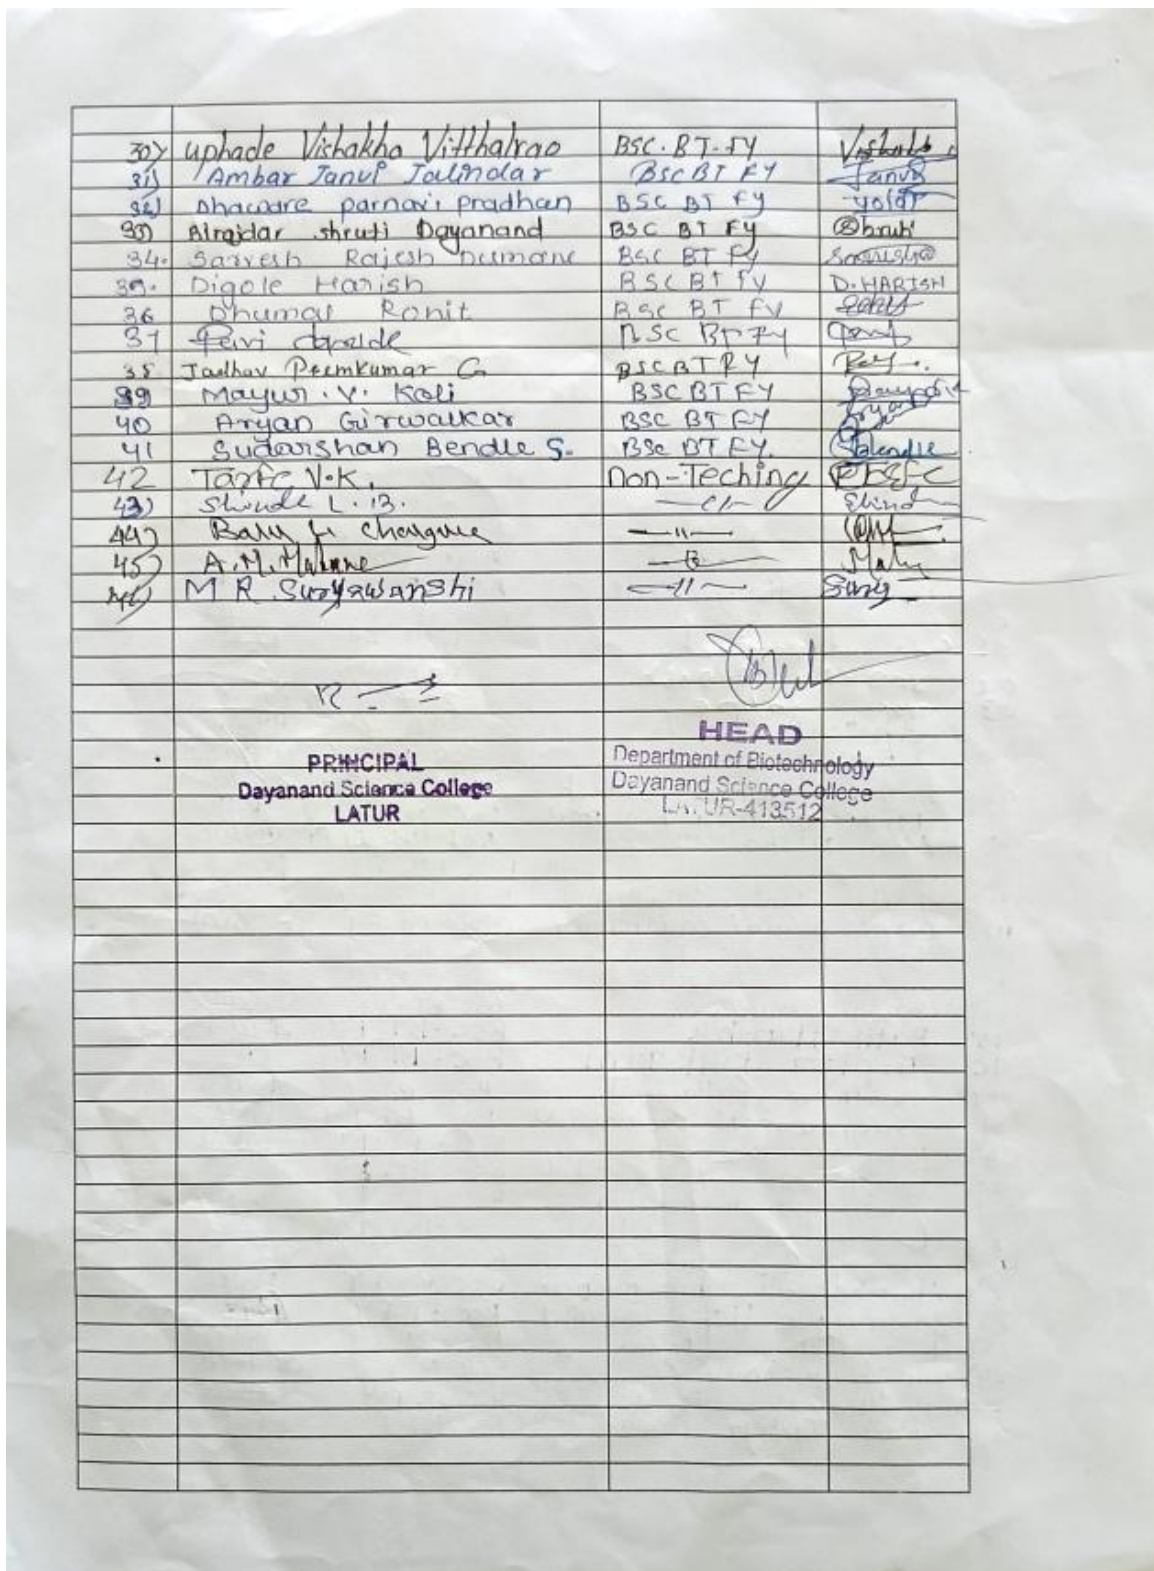 30) uphade Vishakha Vitthalrao BSC. BT-FY Vishakha
31) Ambar Janvi Jalindar BSC BT FY Janvi
32) Dhaware parnavi pradhan BSC BT FY
33) Birajdar shruti Dayanand BSC BT FY Shruti
34. Sarvesh Rajesh Dumane BSC BT Fy
35. Digole Harish BSC BT FY D. HARISH
36 Dhumal Ronit BSC BT FY
37 BSC BT FY
38 Jadhav Premkumar G BSC BT FY
39 Mayur. V. Koli BSC BT FY
40 Aryan Girwalkar BSC BT FY Aryan
41 Sudarshan Bendle S. BSC BT FY. Bendle
42 V.K. Non-Teching
43) Shinde L. B. —〃— Shinde
44) —〃—
45) A.M. —〃—
46) M R Suryawanshi —〃— Sury
PRINCIPAL
Dayanand Science College
LATUR
HEAD
Department of Biotechnology
Dayanand Science College
LATUR-413512